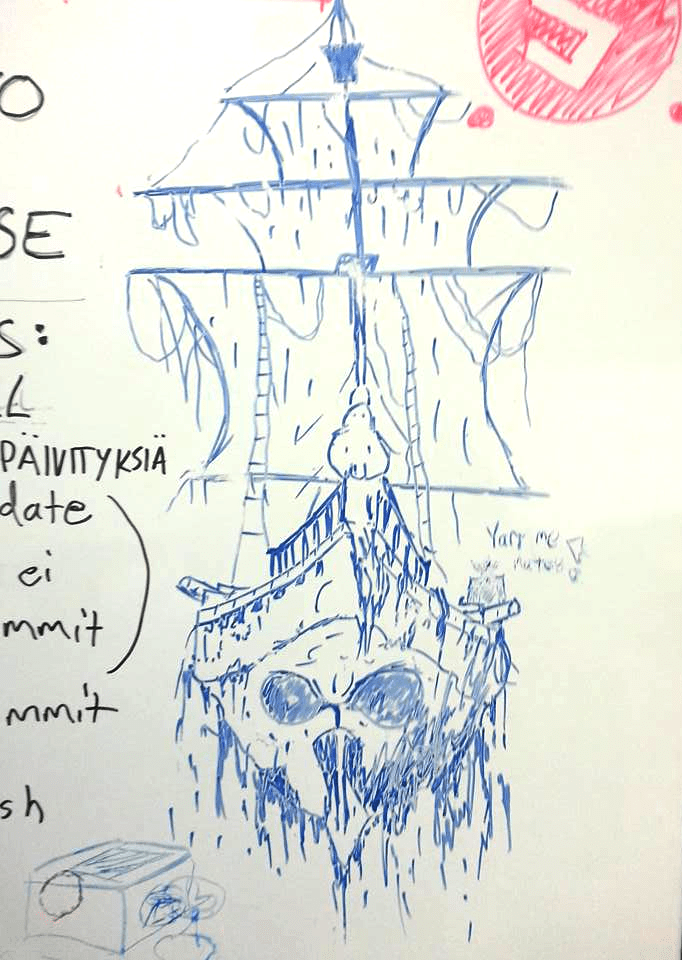 O
SE
S:
L
PÄIVITYKSIÄ
date
ei
mmit
mmit
sh
Yarr me
mateys!